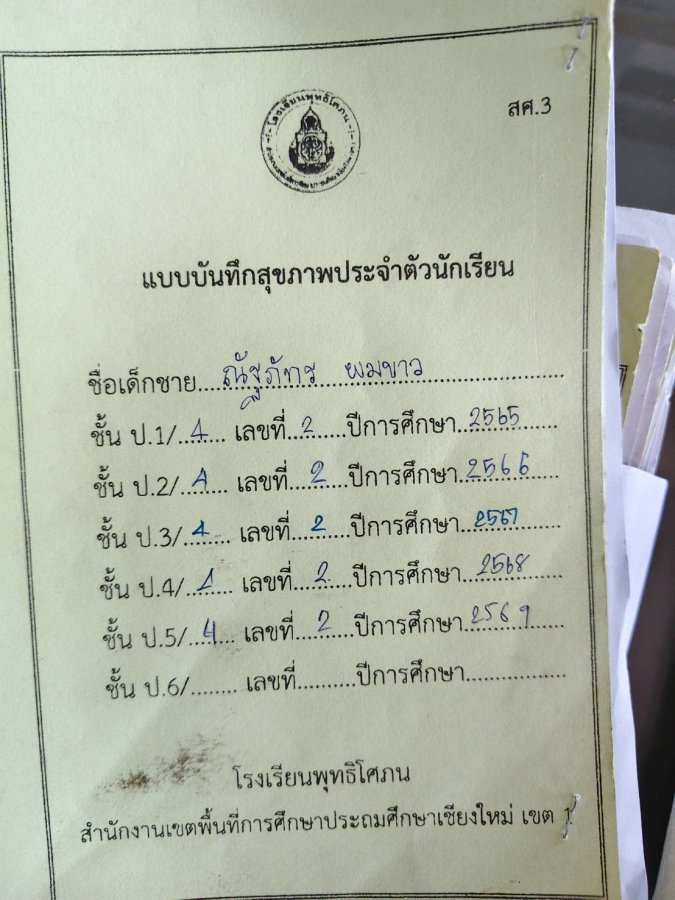 โรงเรียนพุทธิโศภน
สศ.3
แบบบันทึกสุขภาพประจำตัวนักเรียน
ชื่อเด็กชาย....ณัฐภัทร ผมขาว....................
ชั้น ป.1/..4.... เลขที่..2......ปีการศึกษา..2565......
ชั้น ป.2/..4.... เลขที่....2....ปีการศึกษา..2566.....
ชั้น ป.3/..4.... เลขที่....2....ปีการศึกษา...2567.......
ชั้น ป.4/..4.... เลขที่....2....ปีการศึกษา...2568......
ชั้น ป.5/..4.... เลขที่....2....ปีการศึกษา..2569.....
ชั้น ป.6/........ เลขที่..........ปีการศึกษา.................
โรงเรียนพุทธิโศภน
สำนักงานเขตพื้นที่การศึกษาประถมศึกษาเชียงใหม่ เขต 1